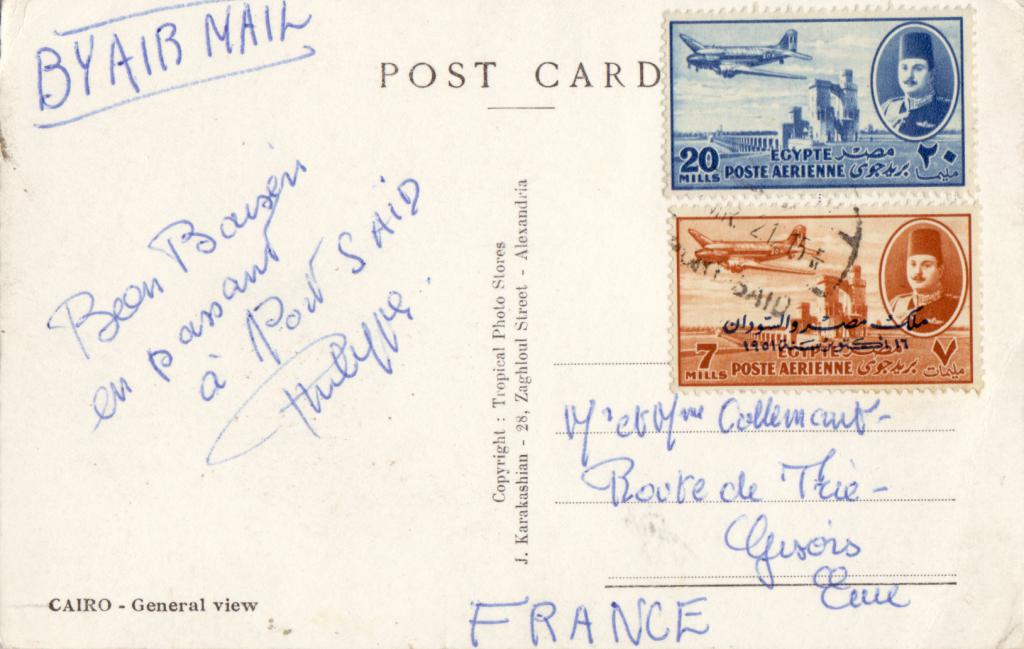 BY AIR MAIL
POST CARD
Bon Baisers
en passant
à Port SAID
Philippe.
Copyright : Tropical Photo Stores
J. Karakashian - 28, Zaghloul Street - Alexandria
CAIRO - General view
EGYPTE مصر
20 MILLS POSTE AERIENNE بريد جوى ٢٠ مليما
21
SAID
ملك مصر والسودان
١٦ اكتوبر سنة ١٩٥١
EGYPTE
7 MILLS POSTE AERIENNE بريد جوى ٧ مليمات
Mr et Mme Collemant-
Route de Trie-
Gisors
Eure
FRANCE